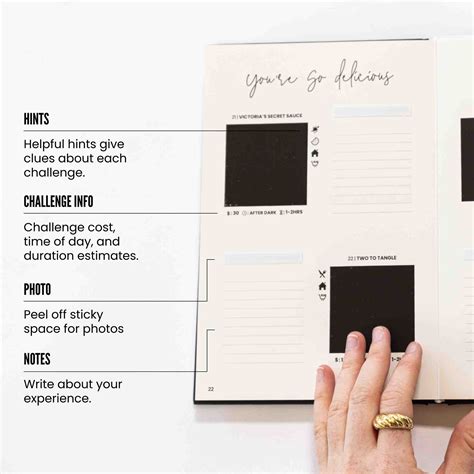 You're so delicious
HINTS
Helpful hints give
clues about each
challenge.
CHALLENGE INFO
Challenge cost,
time of day, and
duration estimates.
PHOTO
Peel off sticky
space for photos
NOTES
Write about your
experience.
21 | VICTORIA'S SECRET SAUCE
$: 30 : AFTER DARK : 1-2HRS
22 | TWO TO TANGLE
22